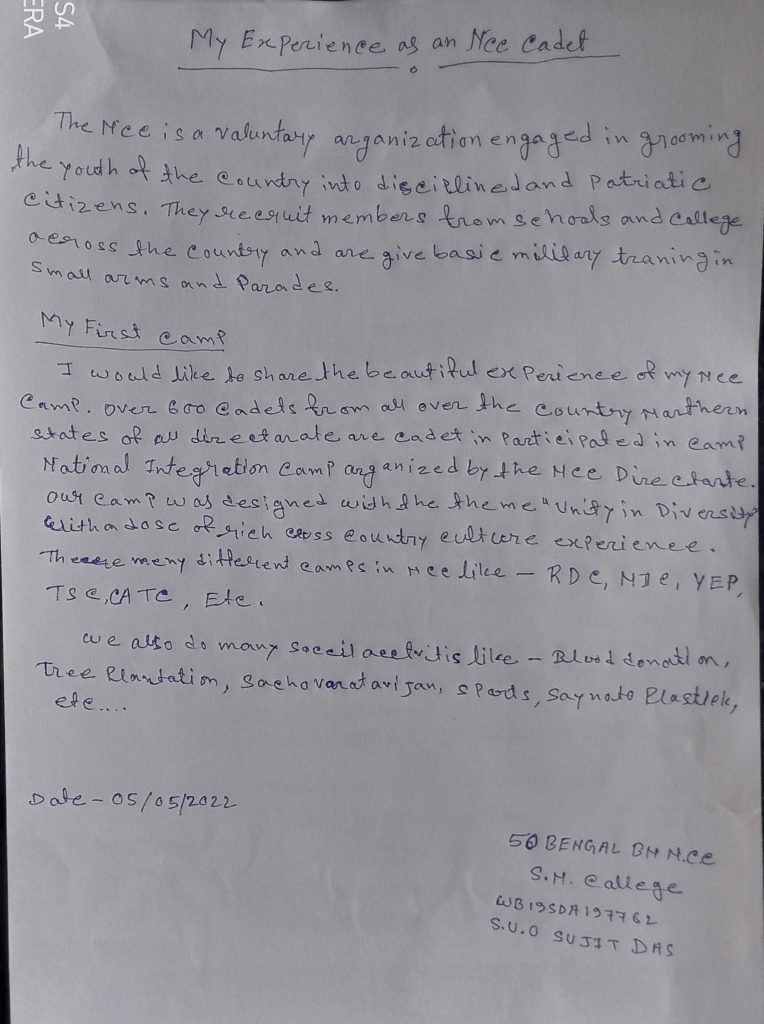 S4
ERA
My Experience as an Ncc Cadet
The Ncc is a valuntary arganization engaged in grooming
the youth of the country into disciplined and Patriatic
citizens. They recruit members from schools and college
across the country and are give basic military traning in
small arms and Parades.
My First camp
I would like to share the beautiful experience of my Ncc
Camp. over 600 cadets from all over the country Narthern
states of all directarate are cadet in participated in camp
National Integration Camp arganized by the Ncc Directarte.
our camp was designed with the theme "Unity in Diversity
with a dose of rich cross country culture experience.
There meny different camps in Ncc like - RDC, NIC, YEP,
TSC, CATC, Etc.
we also do many soceil acetvitis like - Blood donation,
Tree Plantation, Sachovaratavijan, sports, say no to Plastick,
etc....
Date - 05/05/2022
50 BENGAL BN N.CC
S.M. College
WB19SDA197762
S.U.O SUJIT DAS